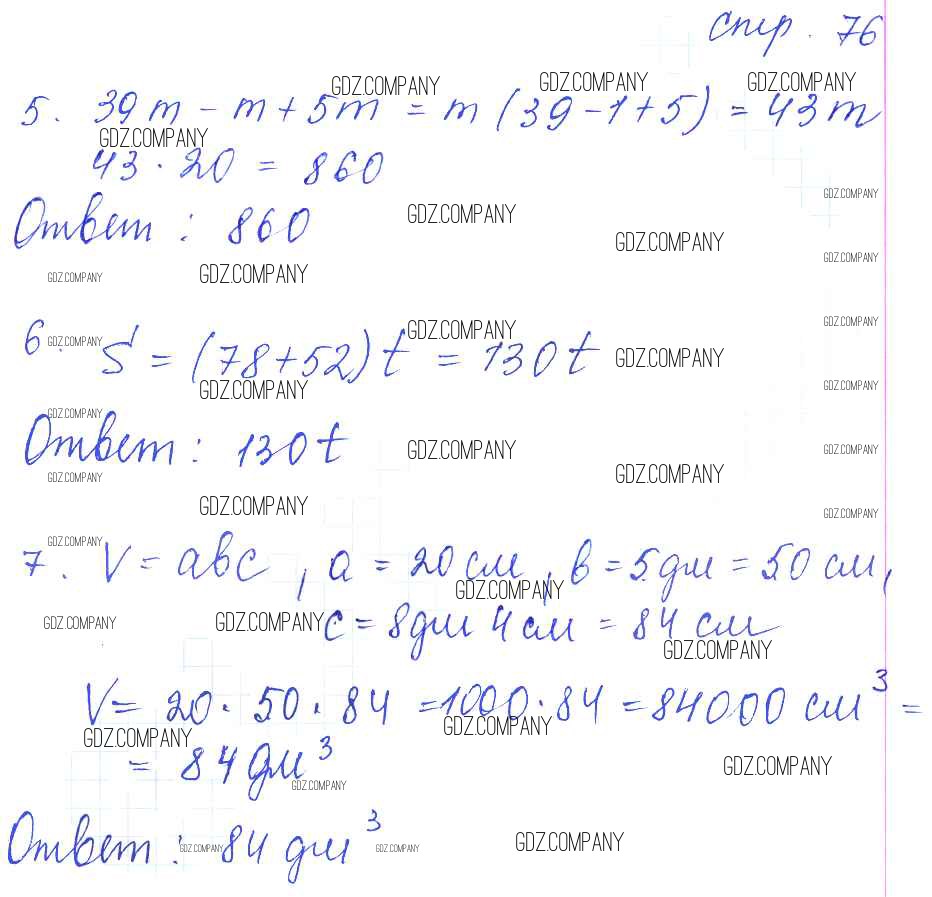 стр. 76
GDZ.COMPANY GDZ.COMPANY GDZ.COMPANY
5. 39m - m + 5m = m (39 - 1 + 5) = 43m
GDZ.COMPANY
43 · 20 = 860
GDZ.COMPANY
Ответ : 860
GDZ.COMPANY
GDZ.COMPANY
GDZ.COMPANY
GDZ.COMPANY GDZ.COMPANY
GDZ.COMPANY
GDZ.COMPANY
6. S = (78 + 52) t = 130t
GDZ.COMPANY
GDZ.COMPANY
GDZ.COMPANY
GDZ.COMPANY
GDZ.COMPANY
Ответ : 130t
GDZ.COMPANY
GDZ.COMPANY
GDZ.COMPANY
GDZ.COMPANY
GDZ.COMPANY
GDZ.COMPANY
GDZ.COMPANY
7. V = abc, a = 20 см, b = 5 дм = 50 см,
GDZ.COMPANY
c = 8 дм 4 см = 84 см
GDZ.COMPANY GDZ.COMPANY
GDZ.COMPANY
V = 20 · 50 · 84 = 1000 · 84 = 84000 см³ =
GDZ.COMPANY GDZ.COMPANY
= 84 дм³
GDZ.COMPANY
GDZ.COMPANY
Ответ : 84 дм³
GDZ.COMPANY GDZ.COMPANY GDZ.COMPANY